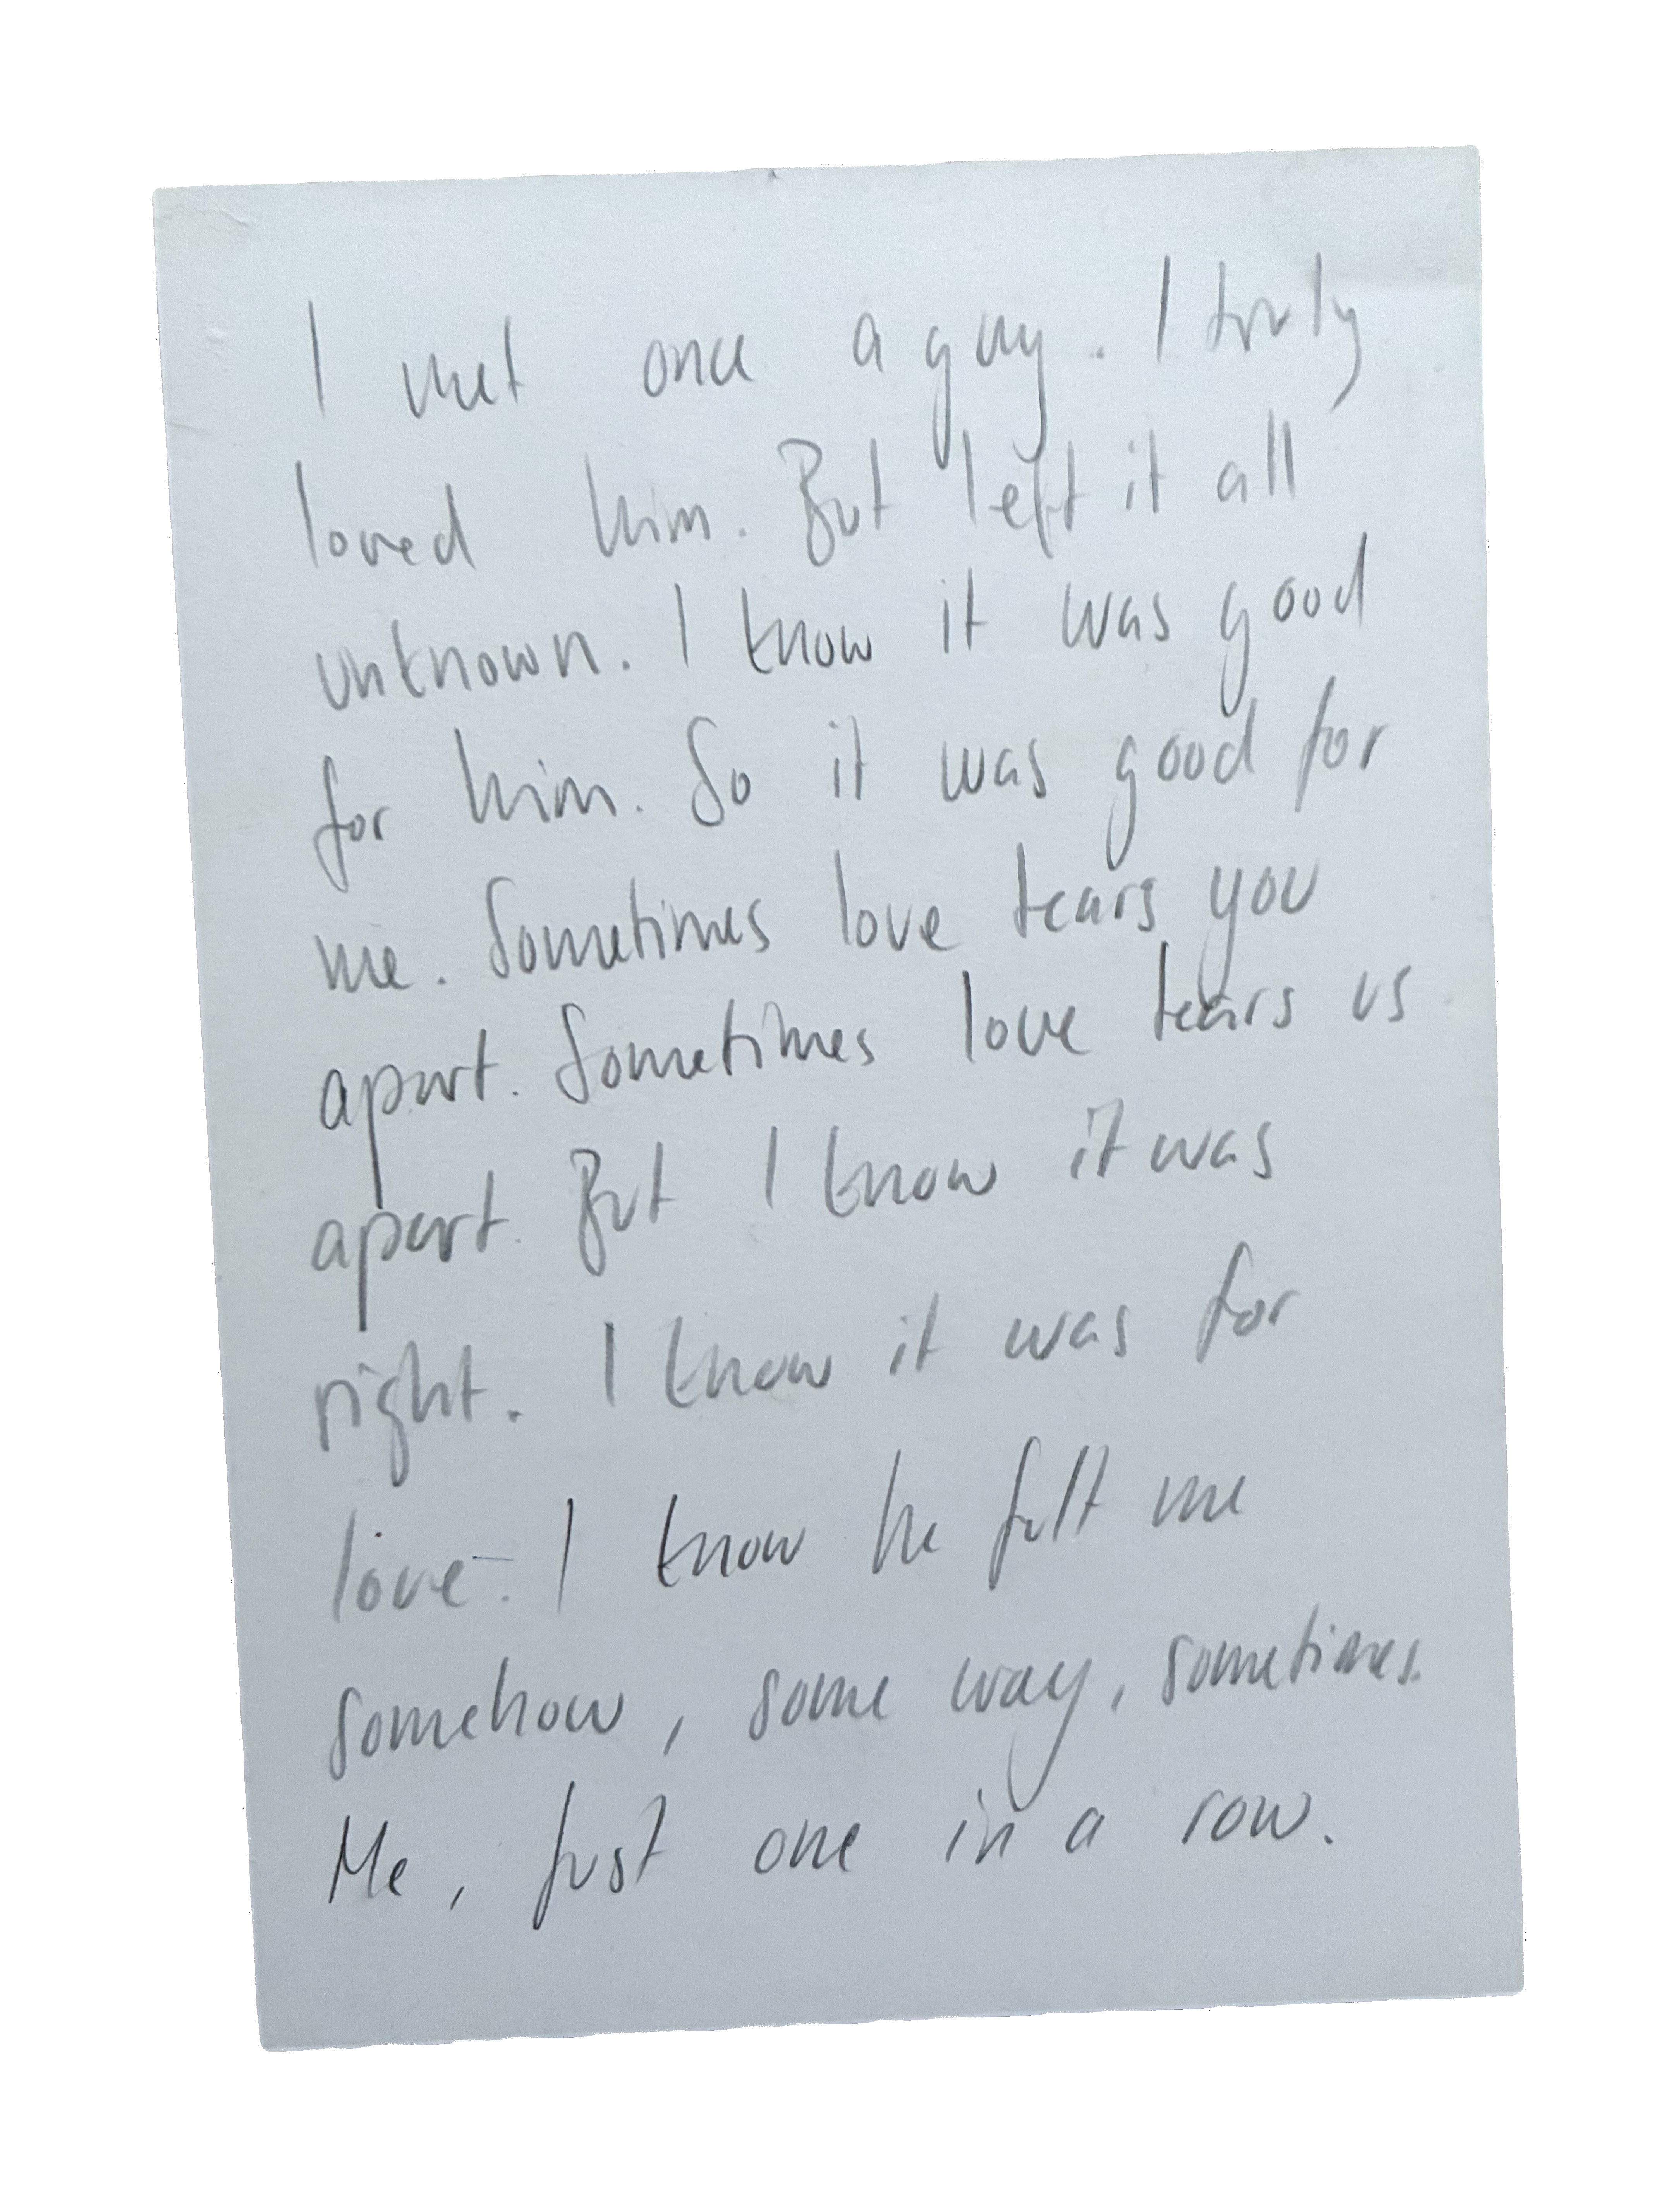 I met once a guy. I truly
loved him. But left it all
unknown. I know it was good
for him. So it was good for
me. Sometimes love tears you
apart. Sometimes love tears us
apart. But I know it was
right. I know it was for
love. I know he felt me
somehow, some way, sometimes.
Me, just one in a row.